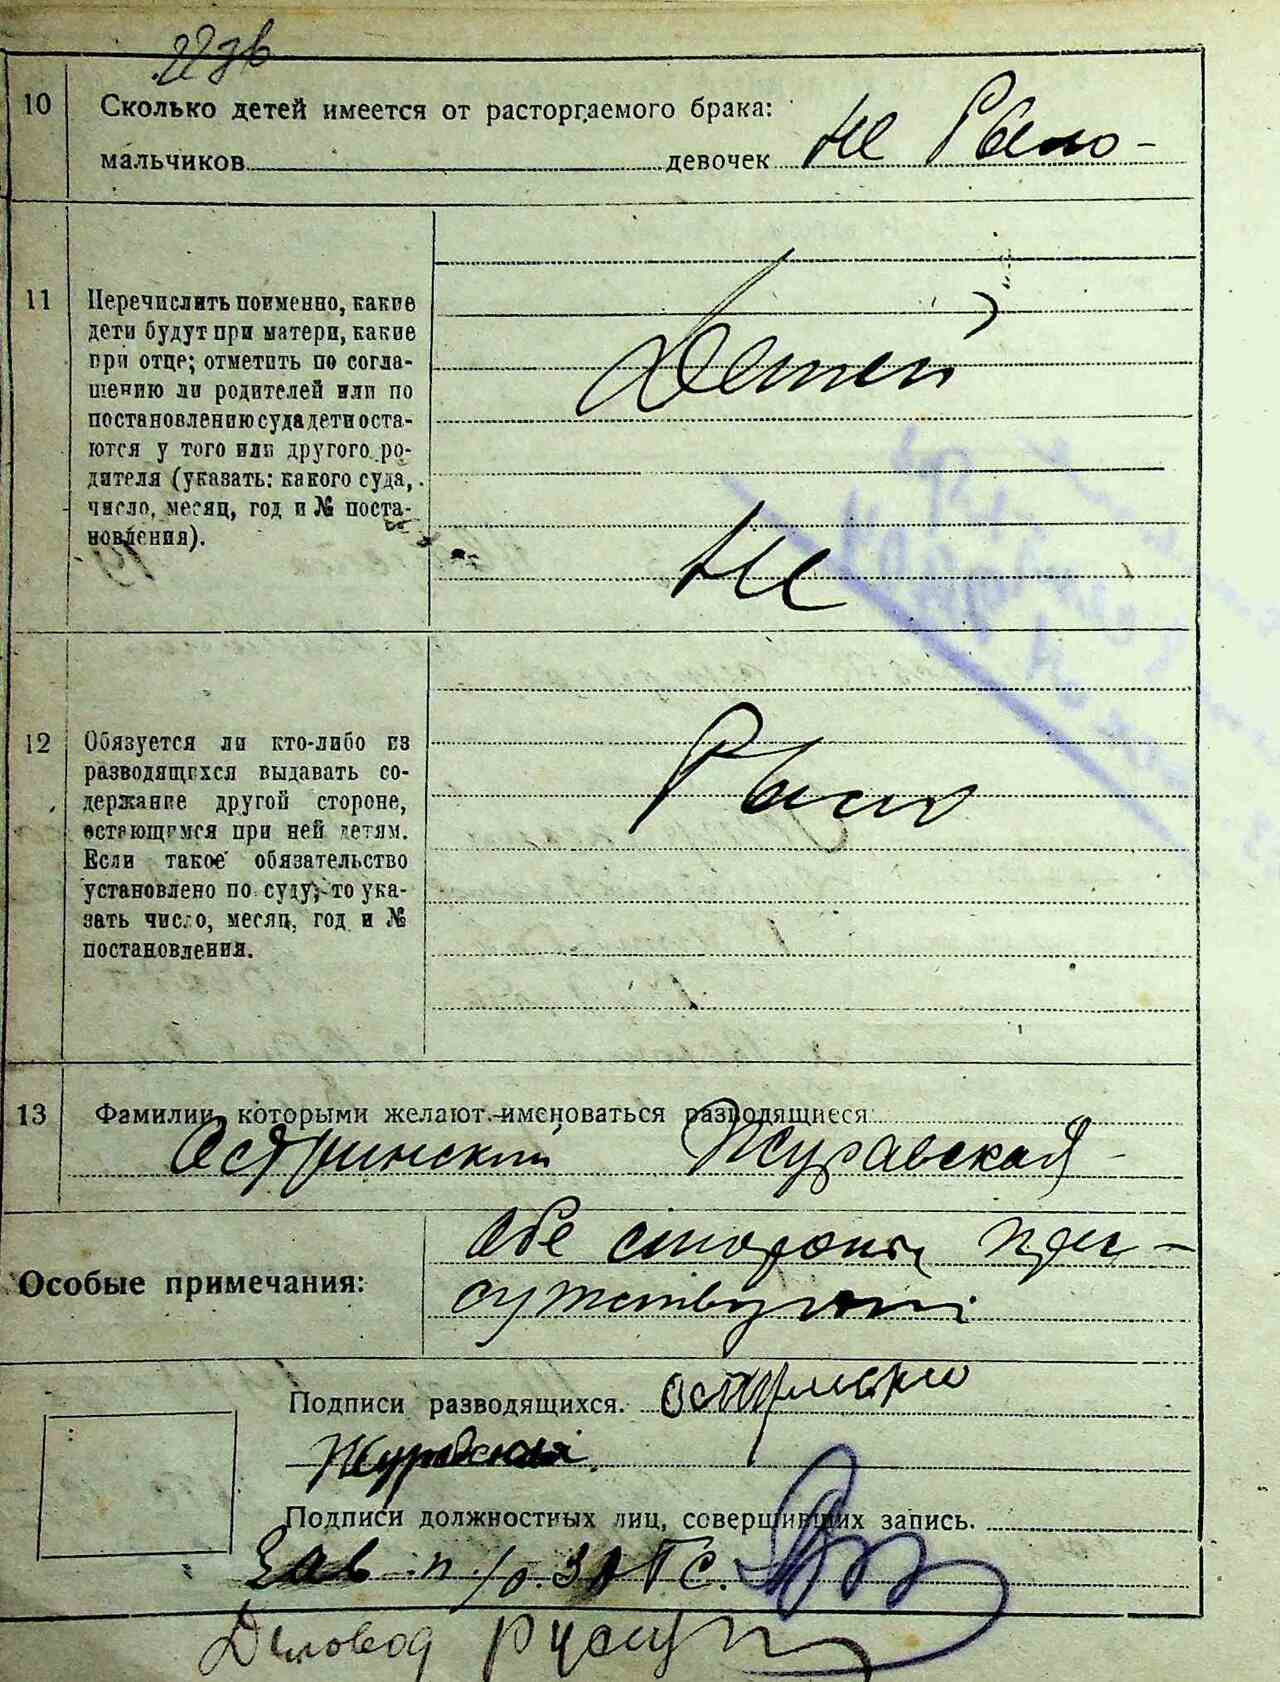 10 Сколько детей имеется от расторгаемого брака:
мальчиков девочек не было
11 Перечислить поименно, какие
дети будут при матери, какие
при отце; отметить по согла-
шению ли родителей или по
постановлению суда дети оста-
ются у того или другого ро-
дителя (указать: какого суда,
число, месяц, год и № поста-
новления).
Детей
не
было
12 Обязуется ли кто-либо из
разводящихся выдавать со-
держание другой стороне,
остающимся при ней детям.
Если такое обязательство
установлено по суду, то ука-
зать число, месяц, год и №
постановления.
13 Фамилии, которыми желают именоваться разводящиеся
Остринский Журавская
Особые примечания:
Обе стороны при-
сутствуют
Подписи разводящихся.
Журавская
Подписи должностных лиц, совершивших запись.
Зав. п/о. ЗАГС.
Деловод